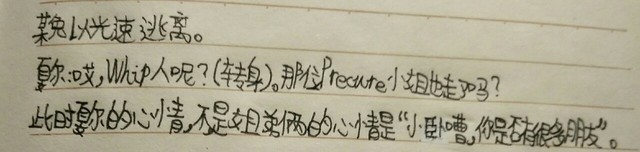 某兔以光速逃离。
夏尔:哎,Whip人呢?(转身)。那位Precure小姐也走了吗?
此时夏尔的心情,不是姐弟俩的心情是“小卧嘈,你是否有很多朋友”。